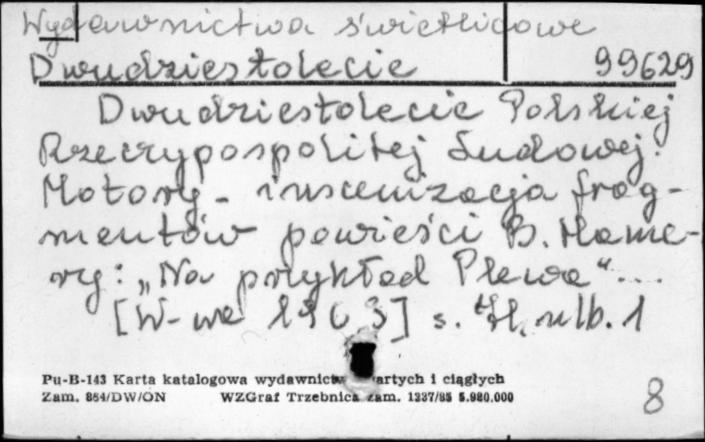 Wydawnictwa świetlicowe
Dwudziestolecie 99629
Dwudziestolecie Polskiej
Rzeczypospolitej Ludowej.
Motory - inscenizacja frag-
mentów powieści B. Hame-
ry: „Na przykład Plewa"...
[W-wa 1963] s. 4, nlb. 1
Pu-B-143 Karta katalogowa wydawnictw zwartych i ciągłych
Zam. 864/DW/ON WZGraf Trzebnica zam. 1337/85 5.980.000
8